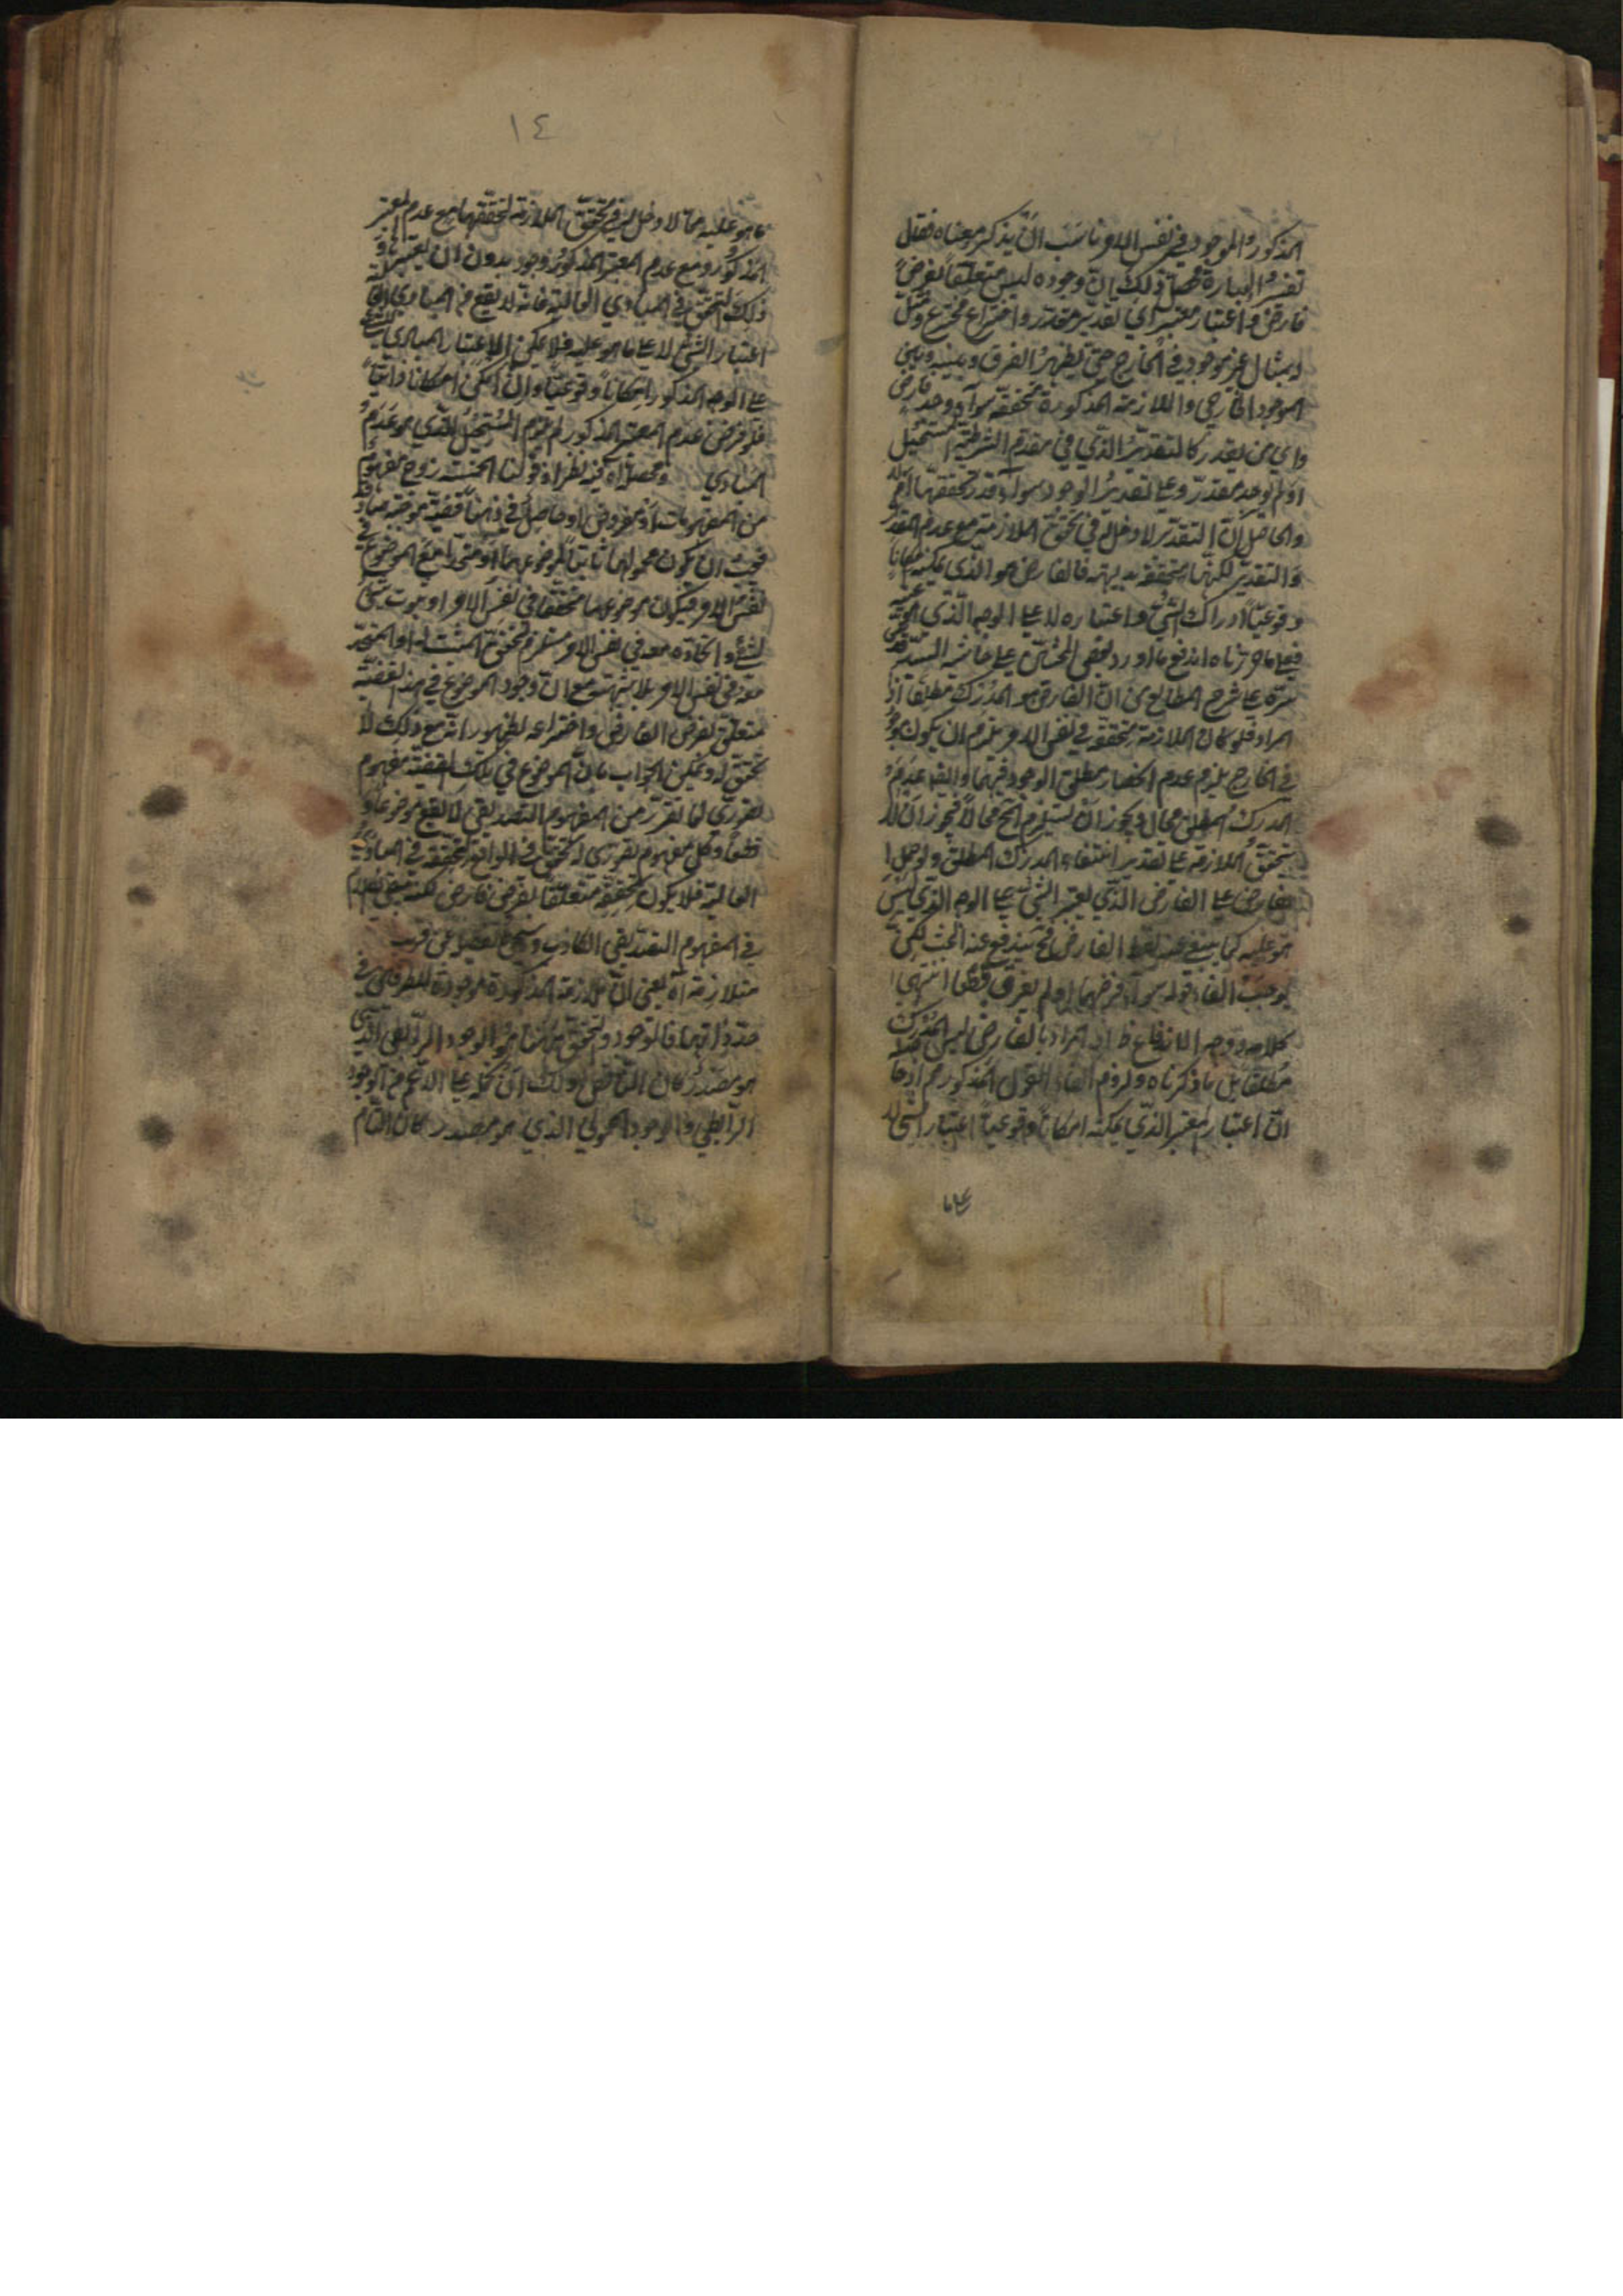 المذكور والموجود في نفس الامر ناسب ان يذكر معناه فقال
تفسير العبارة محصل ذلك ان وجوده ليس متعلقا بفرض
فارض واعتبار معتبر اي تقدير مقدر واختراع مخترع ومثل
بمثال غير موجود في الخارج حتى يظهر الفرق بينه وبين
الموجود الخارجي والملازمة المذكورة متحققة سواء وجد فارض
واي من يقدر كالتقدير الذي في مقدم الشرطية المستحيل
او لم يوجد مقدر وعلى تقدير الوجود سواء قدر تحققها ام لا
والحاصل ان التقدير لا دخل له في تحقق الملازمة مع عدم المقدر
والتقدير لكنها متحققة بديهة فالفارض هو الذي يمكنه امكانا
وقوعيا ادراك الشيء واعتباره لا على الوجه الذي هو عليه
فعلى ما حررناه اندفع ما اورد بعض المحشين على حاشية السيد قدس
سره على شرح المطالع من ان الفارض هو المدرك مطلقا اذا
المراد فلو كان الملازمة متحققة في نفس الامر يلزم ان يكون
في الخارج يلزم عدم انحصار مطلق الوجود فيهما وايضا عدم
المدرك المطلق محال ويجوز ان يستلزم المحال محالا فيجوز ان لا
يتحقق الملازمة على تقدير انتفاء المدرك المطلق ولو حمل
الفارض على الفارض الذي يعتبر الشيء على الوجه الذي ليس
هو عليه كما ينبئ عنه لفظ الفارض فح يندفع عنه البحث لكن
يوجب الغاء قوله سواء فرضها او لم يفرض قطعا انتهى
كلامه ووجه الاندفاع ظ اذ المراد بالفارض ليس المدرك
مطلقا بل ما ذكرناه ولزوم الغاء القول المذكور مم اذ
ان اعتبار المعتبر الذي يمكنه امكانا وقوعيا اعتبار الشيء لا
على ما
١٤
ما هو عليه مما لا دخل له في تحقق الملازمة لتحققها مع عدم المعتبر
المذكور ومع عدم المعتبر المذكور وجود بدون ان يعتبر
ذلك لتحقق في المبادي العالية فانه لا يقع من المبادي
اعتبار الشيء لا على ما هو عليه فلا يمكن الاعتبار المبادي الشيء
على الوجه المذكور امكانا وقوعيا وان امكن امكانا ذاتيا
فلو فرض عدم المعتبر المذكور لم يلزم المستحيل الذي هو عدم
المبادي ومحصله آه فيه نظر اذ قولنا الخمسة زوج مفهوم
من المفهومات او مفروض او حاصل في ذهننا قضية موجبة صادقة
فيجب ان يكون محمولها ثابتا لموضوعها او متحدا مع الموضوع في
نفس الامر فيكون موضوعها متحققا في نفس الامر اذ ثبوت شيء
لشيء واتحاده معه في نفس الامر مستلزم لتحقق المثبت له او المتحد
معه في نفس الامر بلا شبهة مع ان وجود الموضوع في هذه القضية
متعلق بفرض الفارض واختراعه لظهور انه مع ذلك لا
تحقق له ويمكن الجواب بان الموضوع في تلك القضية مفهوم
تصوري لما تقرر من المفهوم التصديقي لا يقع موضوعا
قطعا وكل مفهوم تصوري له تحقق في الواقع لتحققه في المبادي
العالية فلا يكون تحققه متعلقا بفرض فارض لكنه يبقى الكلام
في المفهوم التصديقي الكاذب وسيجيء تفصيله عن قريب
متلازمة آه يعني ان الملازمة المذكورة موجودة للطرفين في
حد ذاتهما فالوجود والتحقق ههنا هو الوجود الرابطي الذي
هو مصدر كان الناقص ولك ان تحمله على الاعم من الوجود
الرابطي والوجود المحمولي الذي هو مصدر كان التام